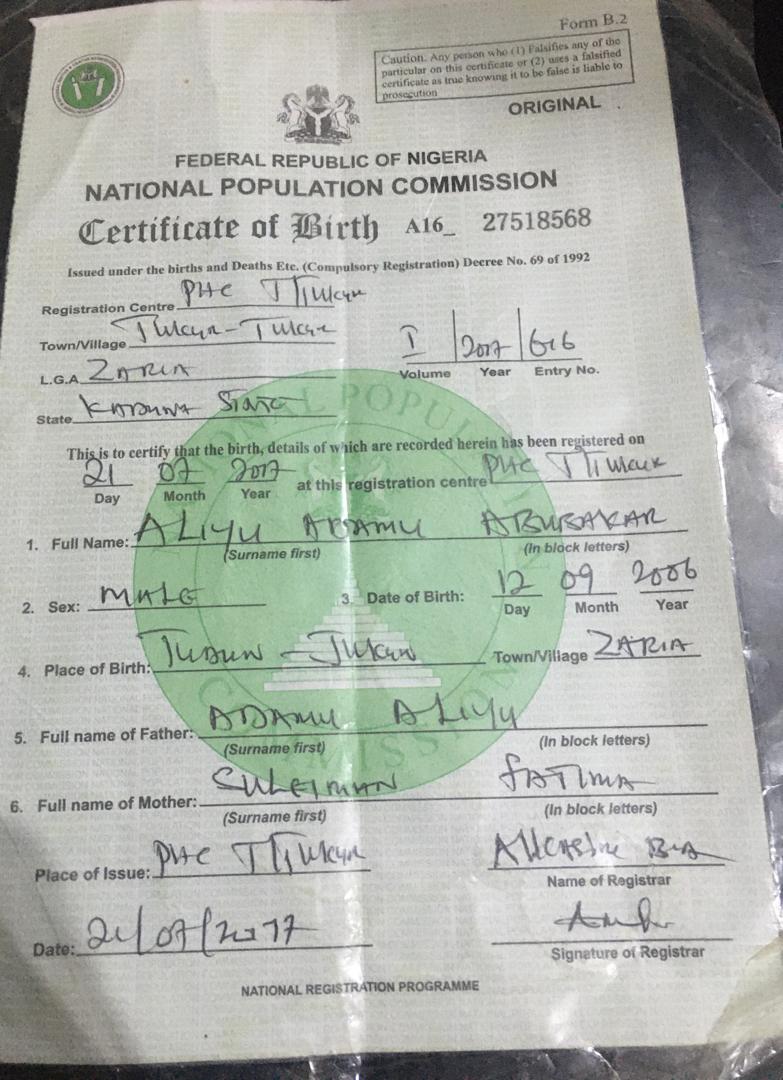 Form B.2
Caution: Any person who (1) Falsifies any of the
particular on this certificate or (2) uses a falsified
certificate as true knowing it to be false is liable to
prosecution
ORIGINAL
FEDERAL REPUBLIC OF NIGERIA
NATIONAL POPULATION COMMISSION
Certificate of Birth A16_ 27518568
Issued under the births and Deaths Etc. (Compulsory Registration) Decree No. 69 of 1992
Registration Centre PHC
Town/Village
I 2017 616
L.G.A. ZARIA
Volume Year Entry No.
State KADUNA STATE
This is to certify that the birth, details of which are recorded herein has been registered on
21 07 2017 at this registration centre PHC
Day Month Year
1. Full Name: ALIYU ADAMU ABUBAKAR
(Surname first) (In block letters)
2. Sex: MALE 3. Date of Birth: 12 09 2006
Day Month Year
4. Place of Birth: Town/Village ZARIA
5. Full name of Father: ADAMU ALIYU
(Surname first) (In block letters)
6. Full name of Mother: SULEIMAN FATIMA
(Surname first) (In block letters)
Place of Issue: PHC
Name of Registrar
Date: 21/07/2017
Signature of Registrar
NATIONAL REGISTRATION PROGRAMME
NATIONAL POPULATION COMMISSION